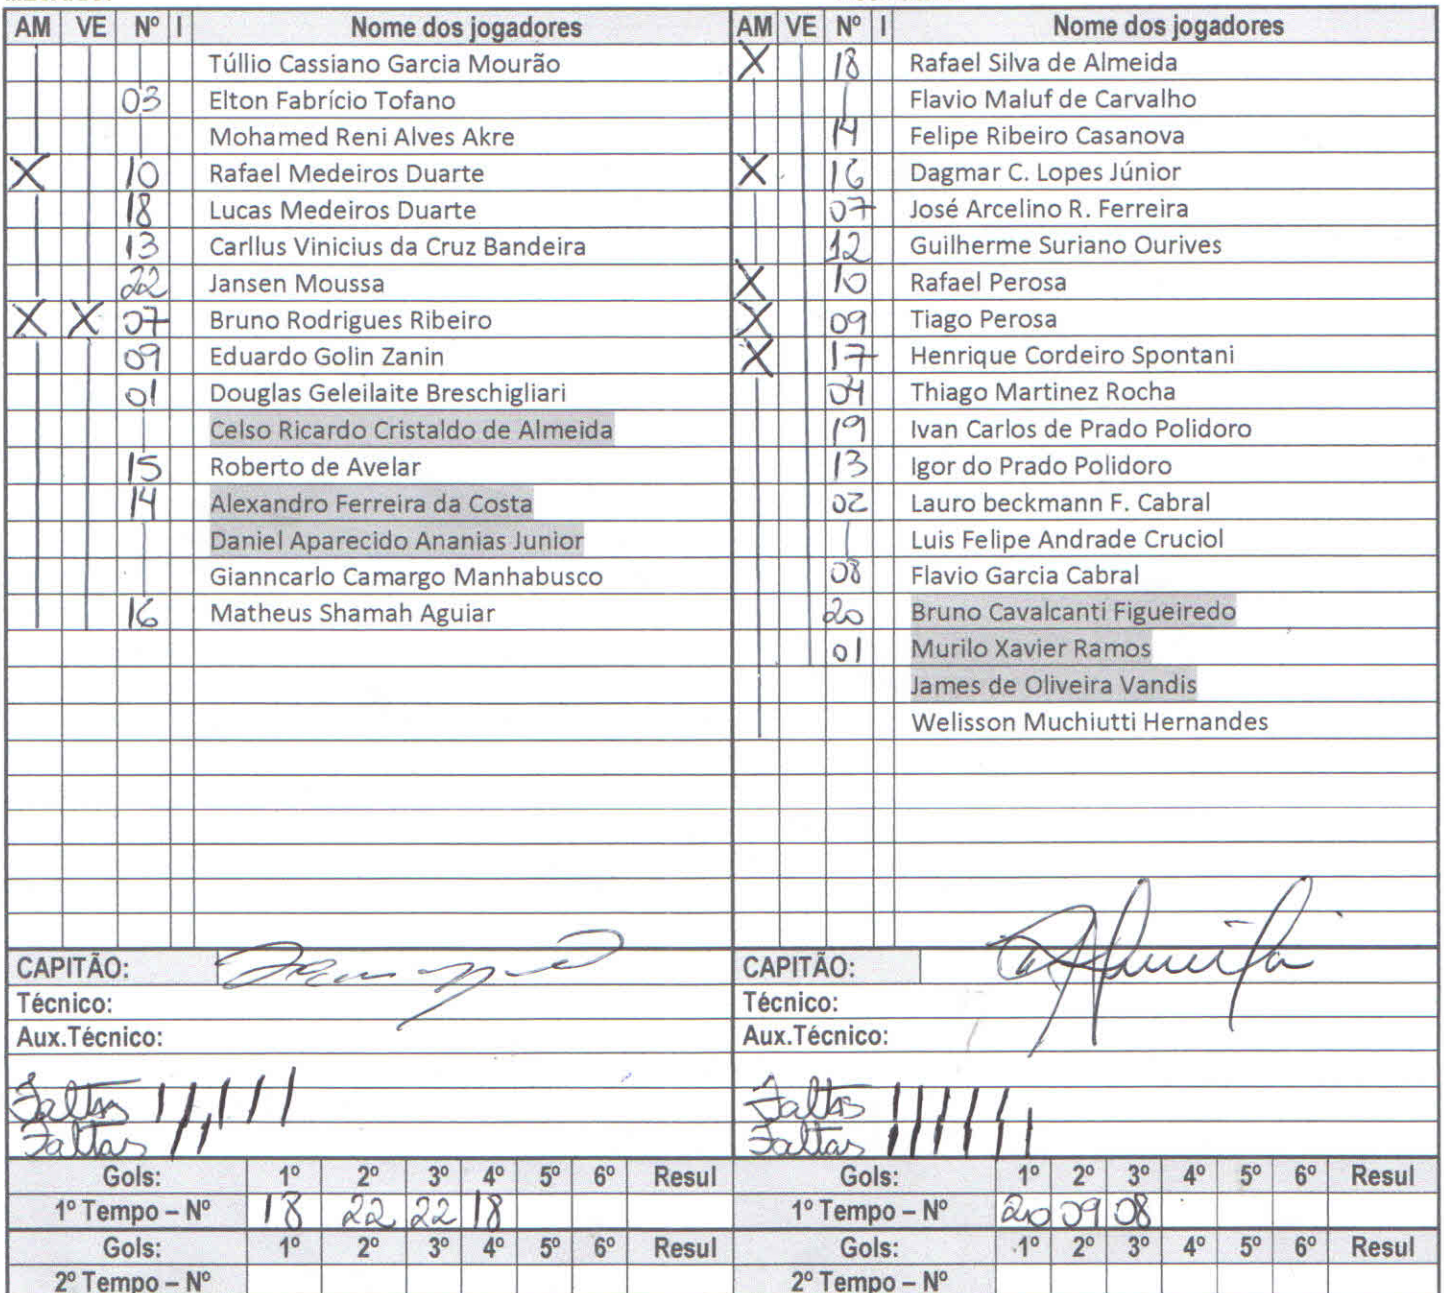 AM VE Nº I Nome dos jogadores
Túllio Cassiano Garcia Mourão
03 Elton Fabrício Tofano
Mohamed Reni Alves Akre
X 10 Rafael Medeiros Duarte
18 Lucas Medeiros Duarte
13 Carllus Vinicius da Cruz Bandeira
22 Jansen Moussa
X X 07 Bruno Rodrigues Ribeiro
09 Eduardo Golin Zanin
01 Douglas Geleilaite Breschigliari
Celso Ricardo Cristaldo de Almeida
15 Roberto de Avelar
14 Alexandro Ferreira da Costa
Daniel Aparecido Ananias Junior
Gianncarlo Camargo Manhabusco
16 Matheus Shamah Aguiar
CAPITÃO:
Técnico:
Aux.Técnico:
Faltas
Faltas
Gols: 1º 2º 3º 4º 5º 6º Resul
1º Tempo – Nº 18 22 22 18
Gols: 1º 2º 3º 4º 5º 6º Resul
2º Tempo – Nº
AM VE Nº I Nome dos jogadores
X 18 Rafael Silva de Almeida
Flavio Maluf de Carvalho
14 Felipe Ribeiro Casanova
X 16 Dagmar C. Lopes Júnior
07 José Arcelino R. Ferreira
12 Guilherme Suriano Ourives
X 10 Rafael Perosa
X 09 Tiago Perosa
X 17 Henrique Cordeiro Spontani
04 Thiago Martinez Rocha
19 Ivan Carlos de Prado Polidoro
13 Igor do Prado Polidoro
02 Lauro beckmann F. Cabral
Luis Felipe Andrade Cruciol
08 Flavio Garcia Cabral
20 Bruno Cavalcanti Figueiredo
01 Murilo Xavier Ramos
James de Oliveira Vandis
Welisson Muchiutti Hernandes
CAPITÃO:
Técnico:
Aux.Técnico:
Faltas
Faltas
Gols: 1º 2º 3º 4º 5º 6º Resul
1º Tempo – Nº 20 09 08
Gols: 1º 2º 3º 4º 5º 6º Resul
2º Tempo – Nº